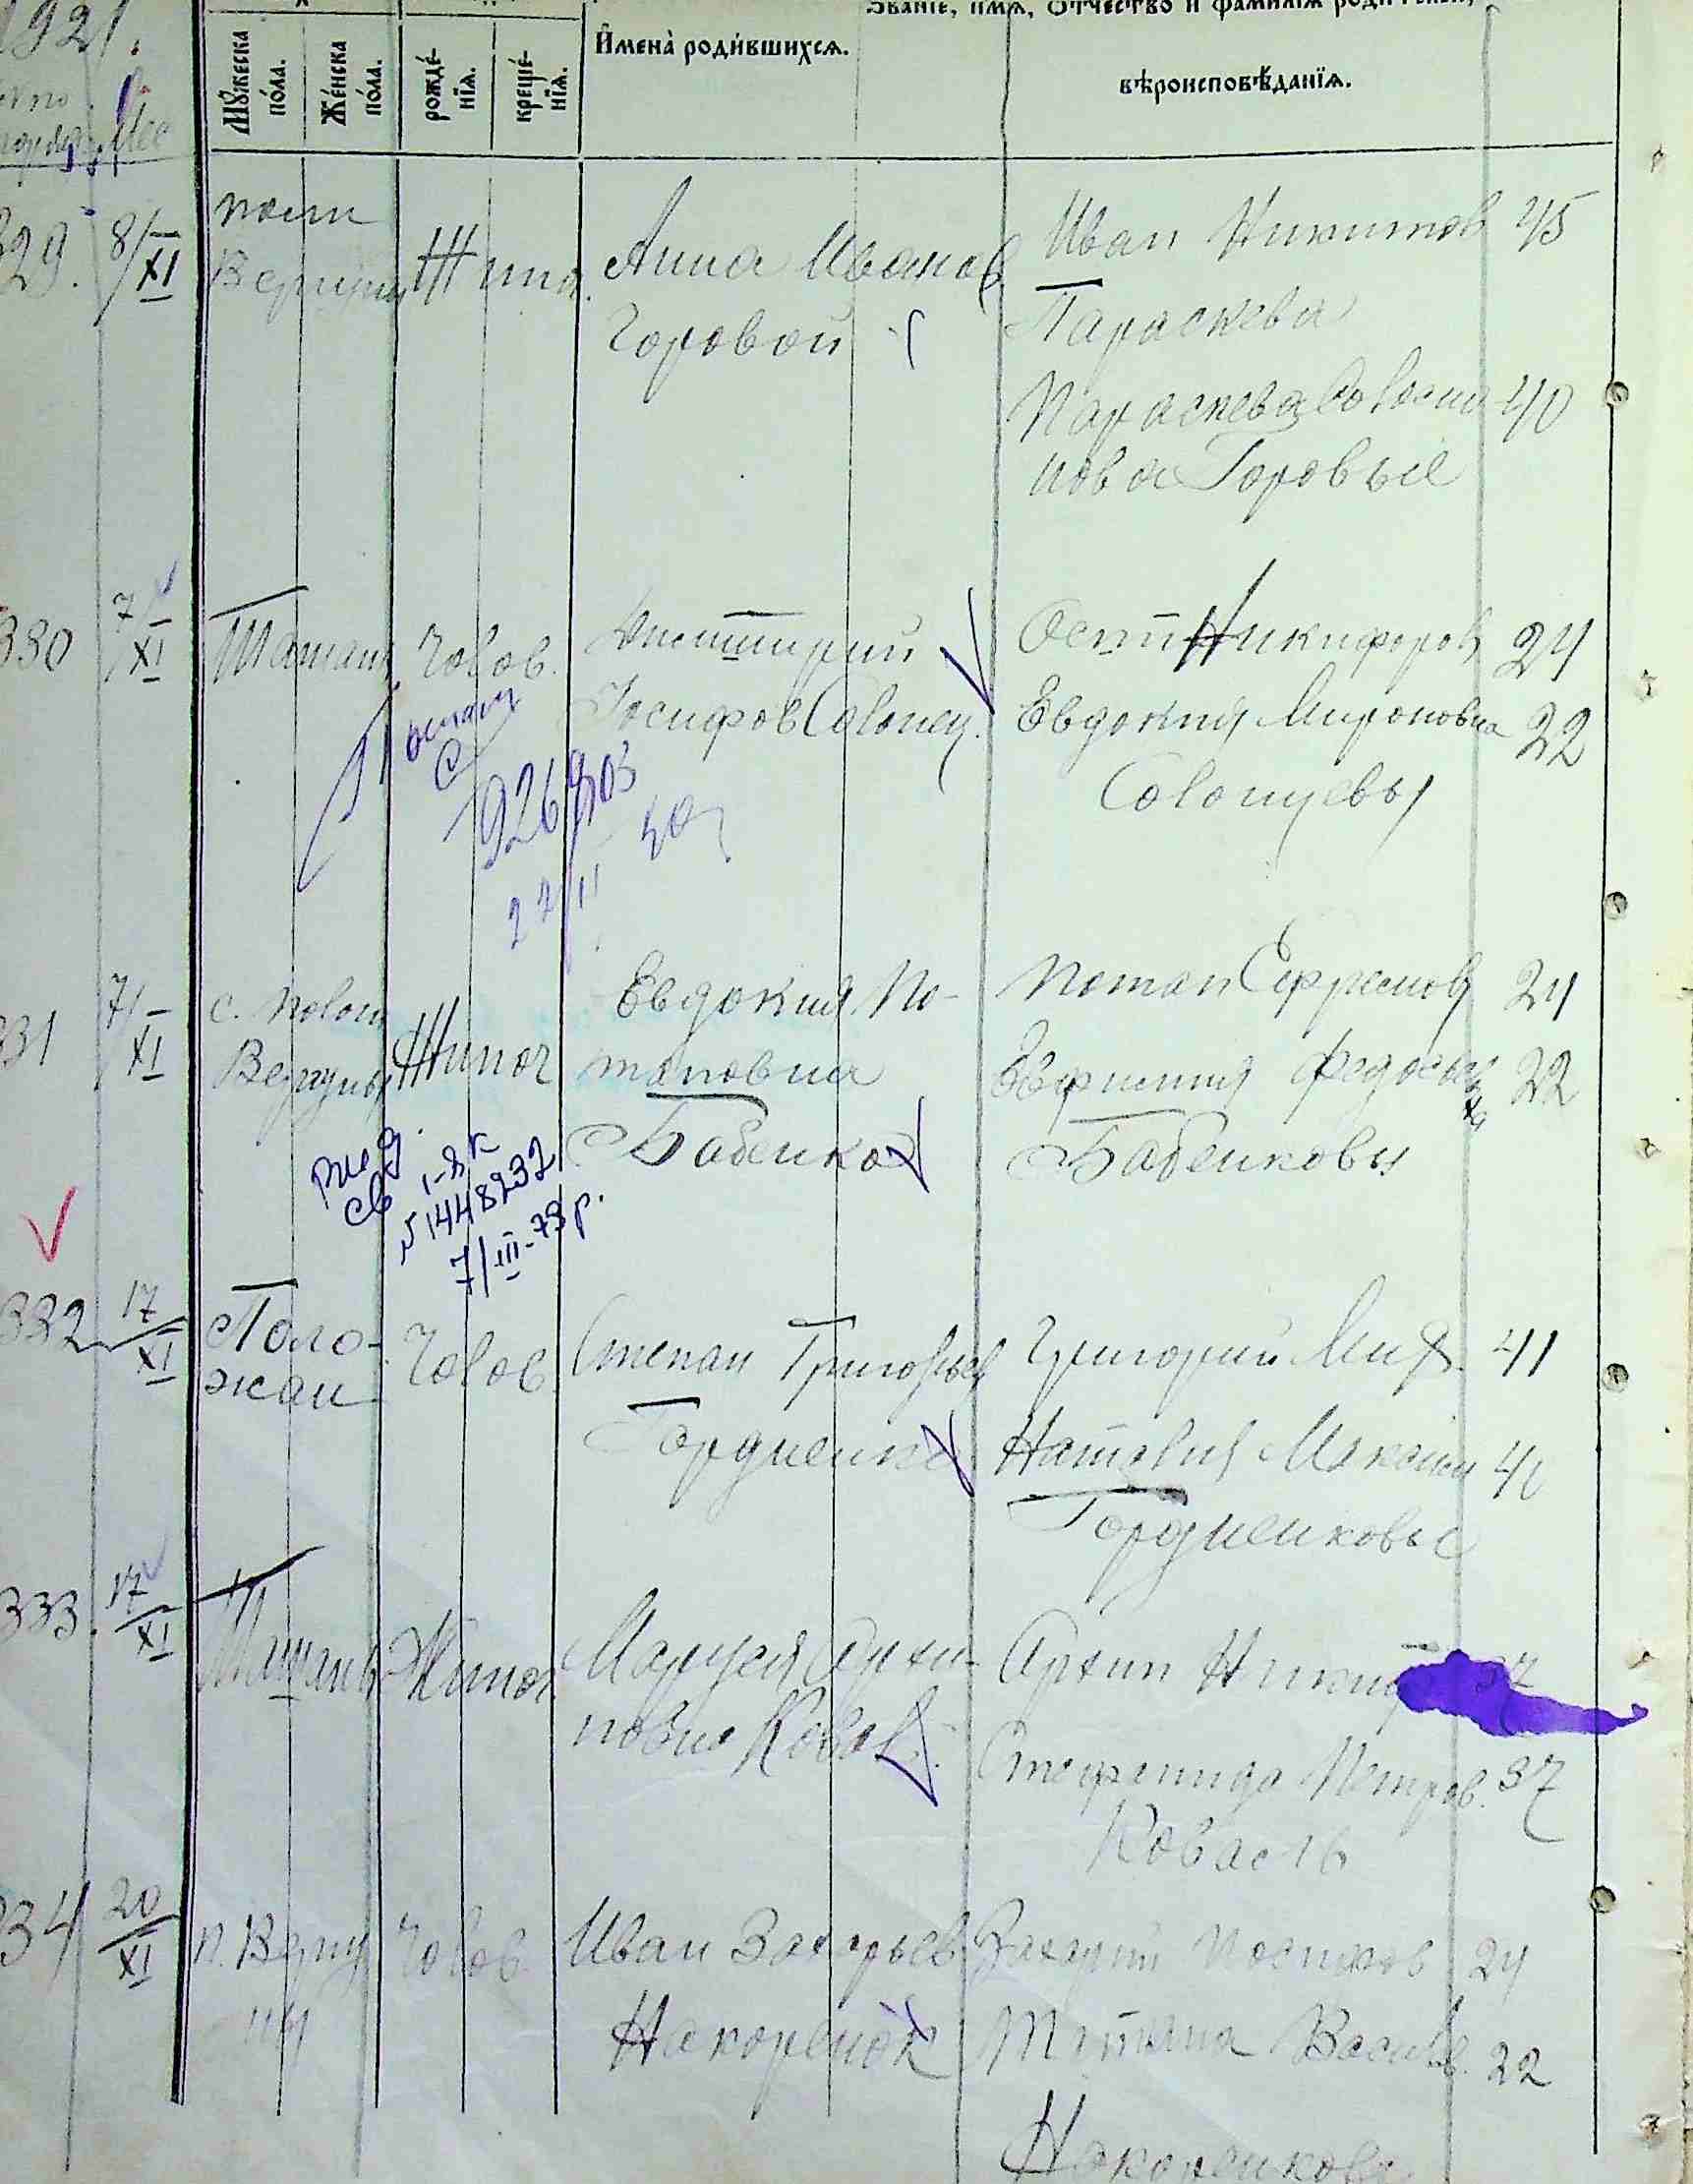 1921.
Мꙋжеска пола.
Женска пола.
рожде-
нїѧ.
креще-
нїѧ.
Имена̀ роди́вшихсѧ.
Званїе, имѧ, Отчество и фамилїѧ родителей,
вѣроисповѣданїѧ.
329. 8/XI
Верг Жиноч.
Анна Иванов
Горовой
Иван Никитов 45
Параскева
Параскева 40
нова Горовые
330 7/XI
Чолов.
Дмитрий
Иосифов Солонец.
Осип Никифоров 24
Евдокия Мироновна 22
Солонцевы
926903
27/II 40
331 7/XI
с. Полов
Вергуны Жиноч
Евдокия По-
таповна
Бабенко
Потап Ефремов 24
Евфимия Федосьев 22
Бабенковы
св I-ЯК
№ 1448232
7/III-78 р.
332 17/XI
Поло-
жаи
Чолов
Степан Григорьев
Гордиенко
Григорий Миф. 41
Наталия Максим 41
Гордиенковы
333. 17/XI
Жиноч.
Маруся Архи-
повна Ковал.
Архип Никиф 37
Степанида Петров. 37
Коваль
334 20/XI
п. Вергу
ны
Чолов
Иван Захарьев
Накоренок
Захарий Иосифов 24
Татьяна Васильев. 22